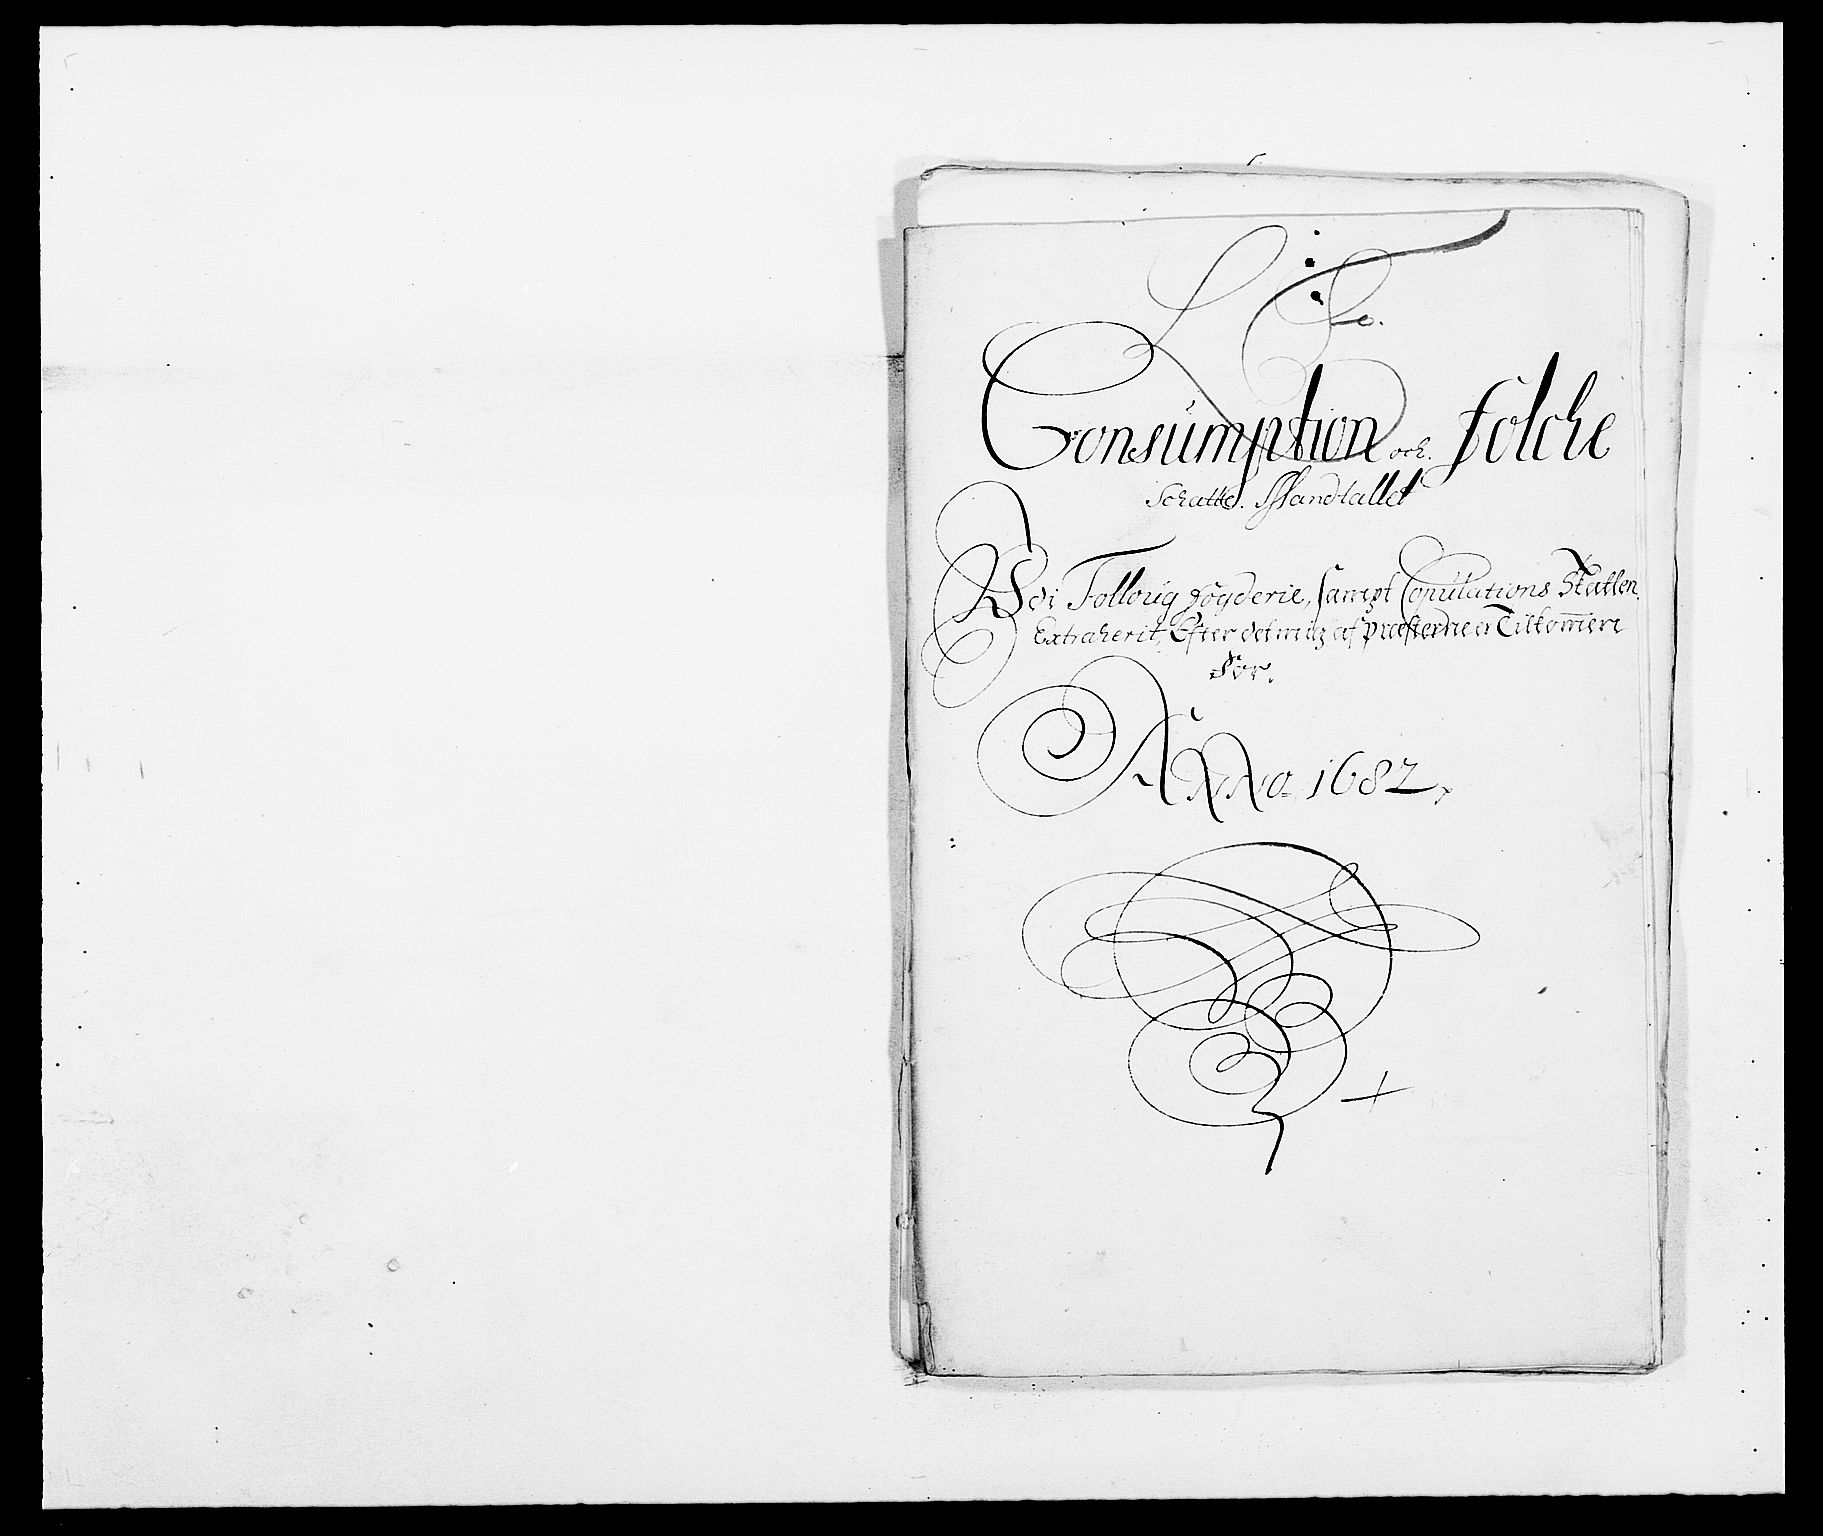 Consumption och. folche
Schatte. Mandtallet
Udi Folloug fogderie, sampt Copulations Skatten
Extraherit, Efter det mig af præsterne er Tilkom̄ene
for.
ANNO 1682,